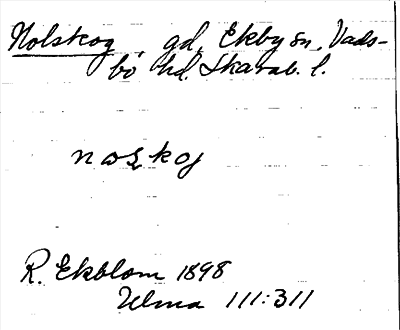 Nolskog, gd, Ekby sn, Vads-
bo hd. Skarab. l.
noskoj
R. Ekblom 1898
Ulma 111:311